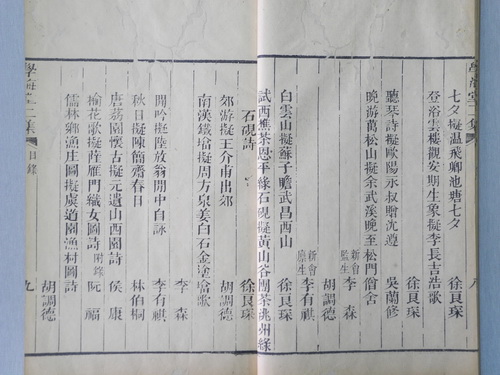 七夕擬温飛卿池塘七夕 徐良琛
登浴雲樓觀安期生象擬李長吉浩歌
徐良琛
聽琴詩擬歐陽永叔贈沈遵 吳蘭修
晚游萬松山擬余武溪晚至松門僧舍
新會監生 李森
胡調德
白雲山擬蘇子瞻武昌西山 新會監生 李有祺
試西樵茶恩平綠石硯擬黃山谷團茶洮州綠
石硯詩 徐良琛
郊游擬王介甫出郊 胡調德
南漢鐵塔擬周方泉姜白石金塗塔歌
李森
閒吟擬陸放翁閒中自詠 李有祺
秋日擬陳簡齋春日 林伯桐
唐荔園懷古擬元遺山西園詩 侯康
榆花歌擬薩雁門織女圖詩 附錄 阮福
儒林鄉漁庄圖擬虞道園漁村圖詩
胡調德
學海堂二集 目錄 九